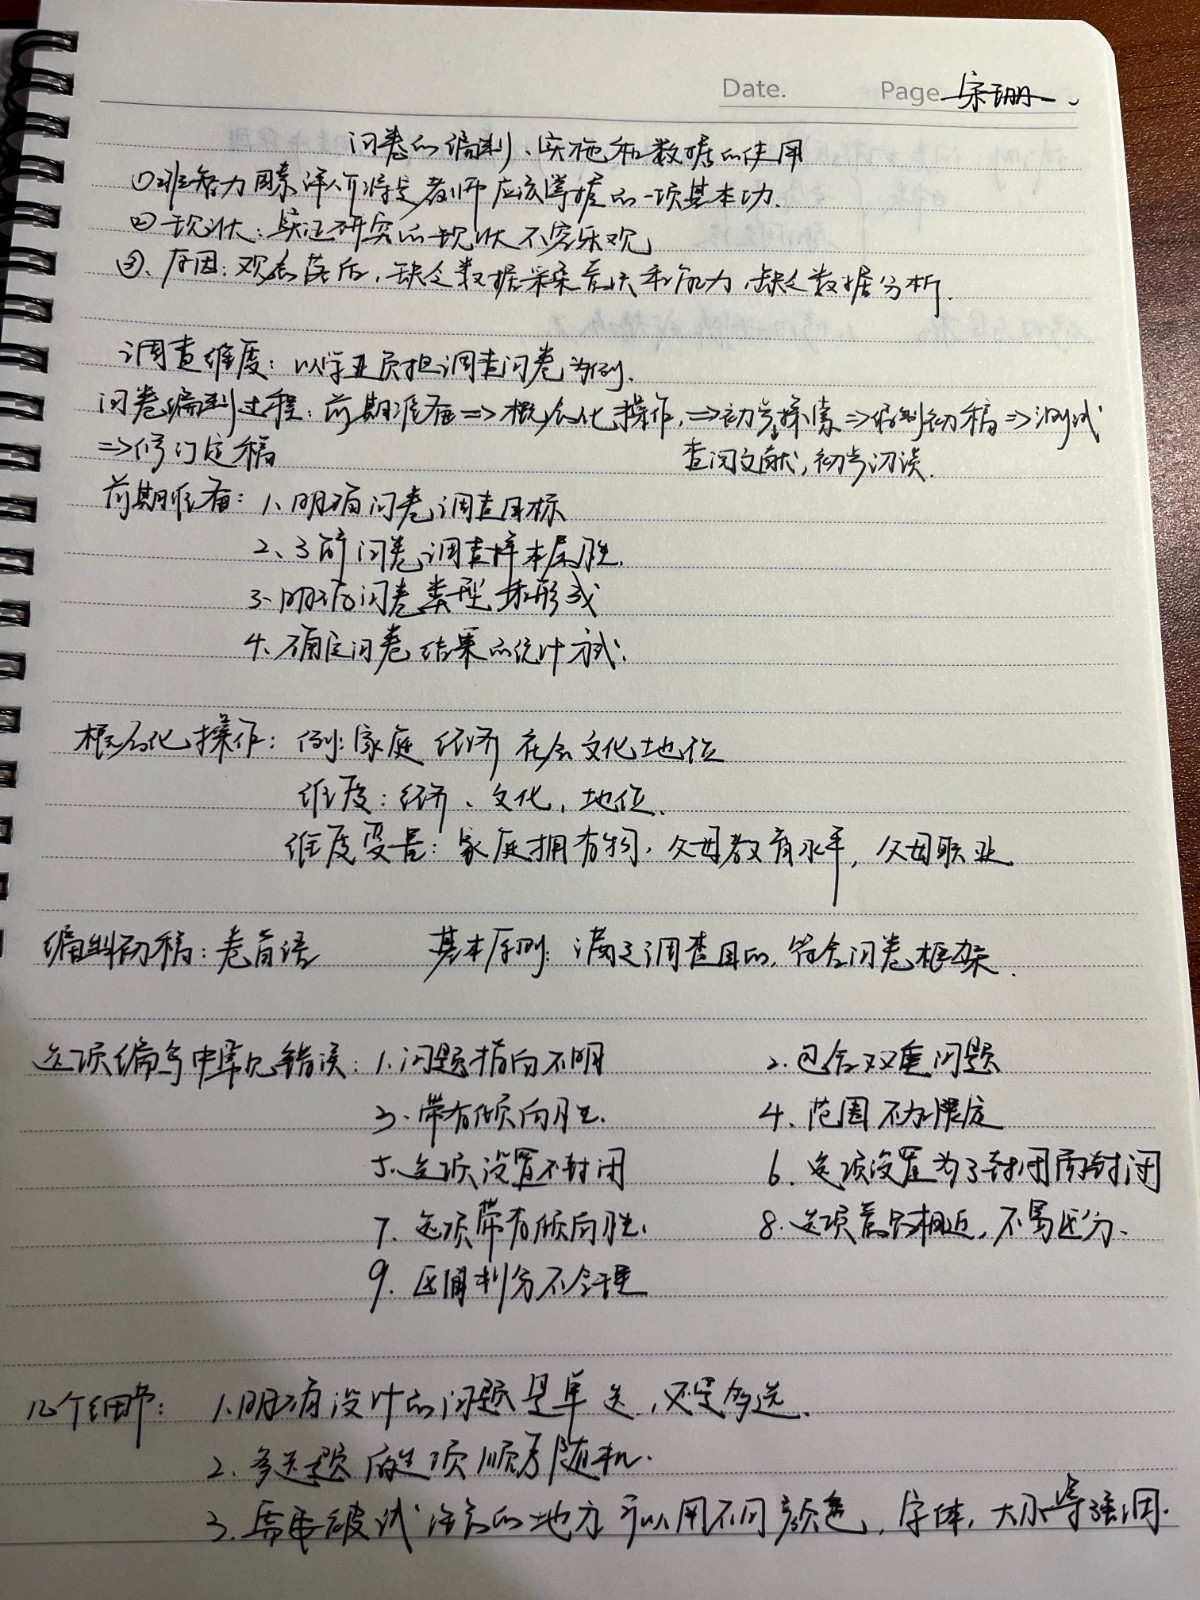 Date. Page 宋珊
问卷的编制、实施和数据的使用
①非智力因素评价将是教师应该掌握的一项基本功.
②现状:实证研究的现状不容乐观
③、原因:观念落后,缺乏数据采集意识和能力,缺乏数据分析.
调查维度:以学业负担调查问卷为例.
问卷编制过程:前期准备⇒概念化操作,⇒初步探索⇒编制初稿⇒测试
⇒修订定稿 查阅文献,初步访谈.
前期准备:1、明确问卷调查目标
2、了解问卷调查样本属性.
3、明确问卷类型和形式
4、确定问卷结果的统计方式.
概念化操作:例:家庭经济社会文化地位
维度:经济、文化,地位.
维度变量:家庭拥有物,父母教育水平,父母职业
编制初稿:卷首语 基本原则:满足调查目的,符合问卷框架.
选项编写中常见错误:1.问题指向不明 2.包含双重问题
3.带有倾向性. 4、范围不加限定
5、选项设置不封闭 6、选项设置为了封闭而封闭
7、选项带有倾向性. 8.选项意思相近,不易区分.
9、区间划分不合理
几个细节: 1.明确设计的问题是单选,还是多选.
2、多选题的选项顺序随机.
3、需要被试注意的地方可以用不同颜色,字体,大小等强调.